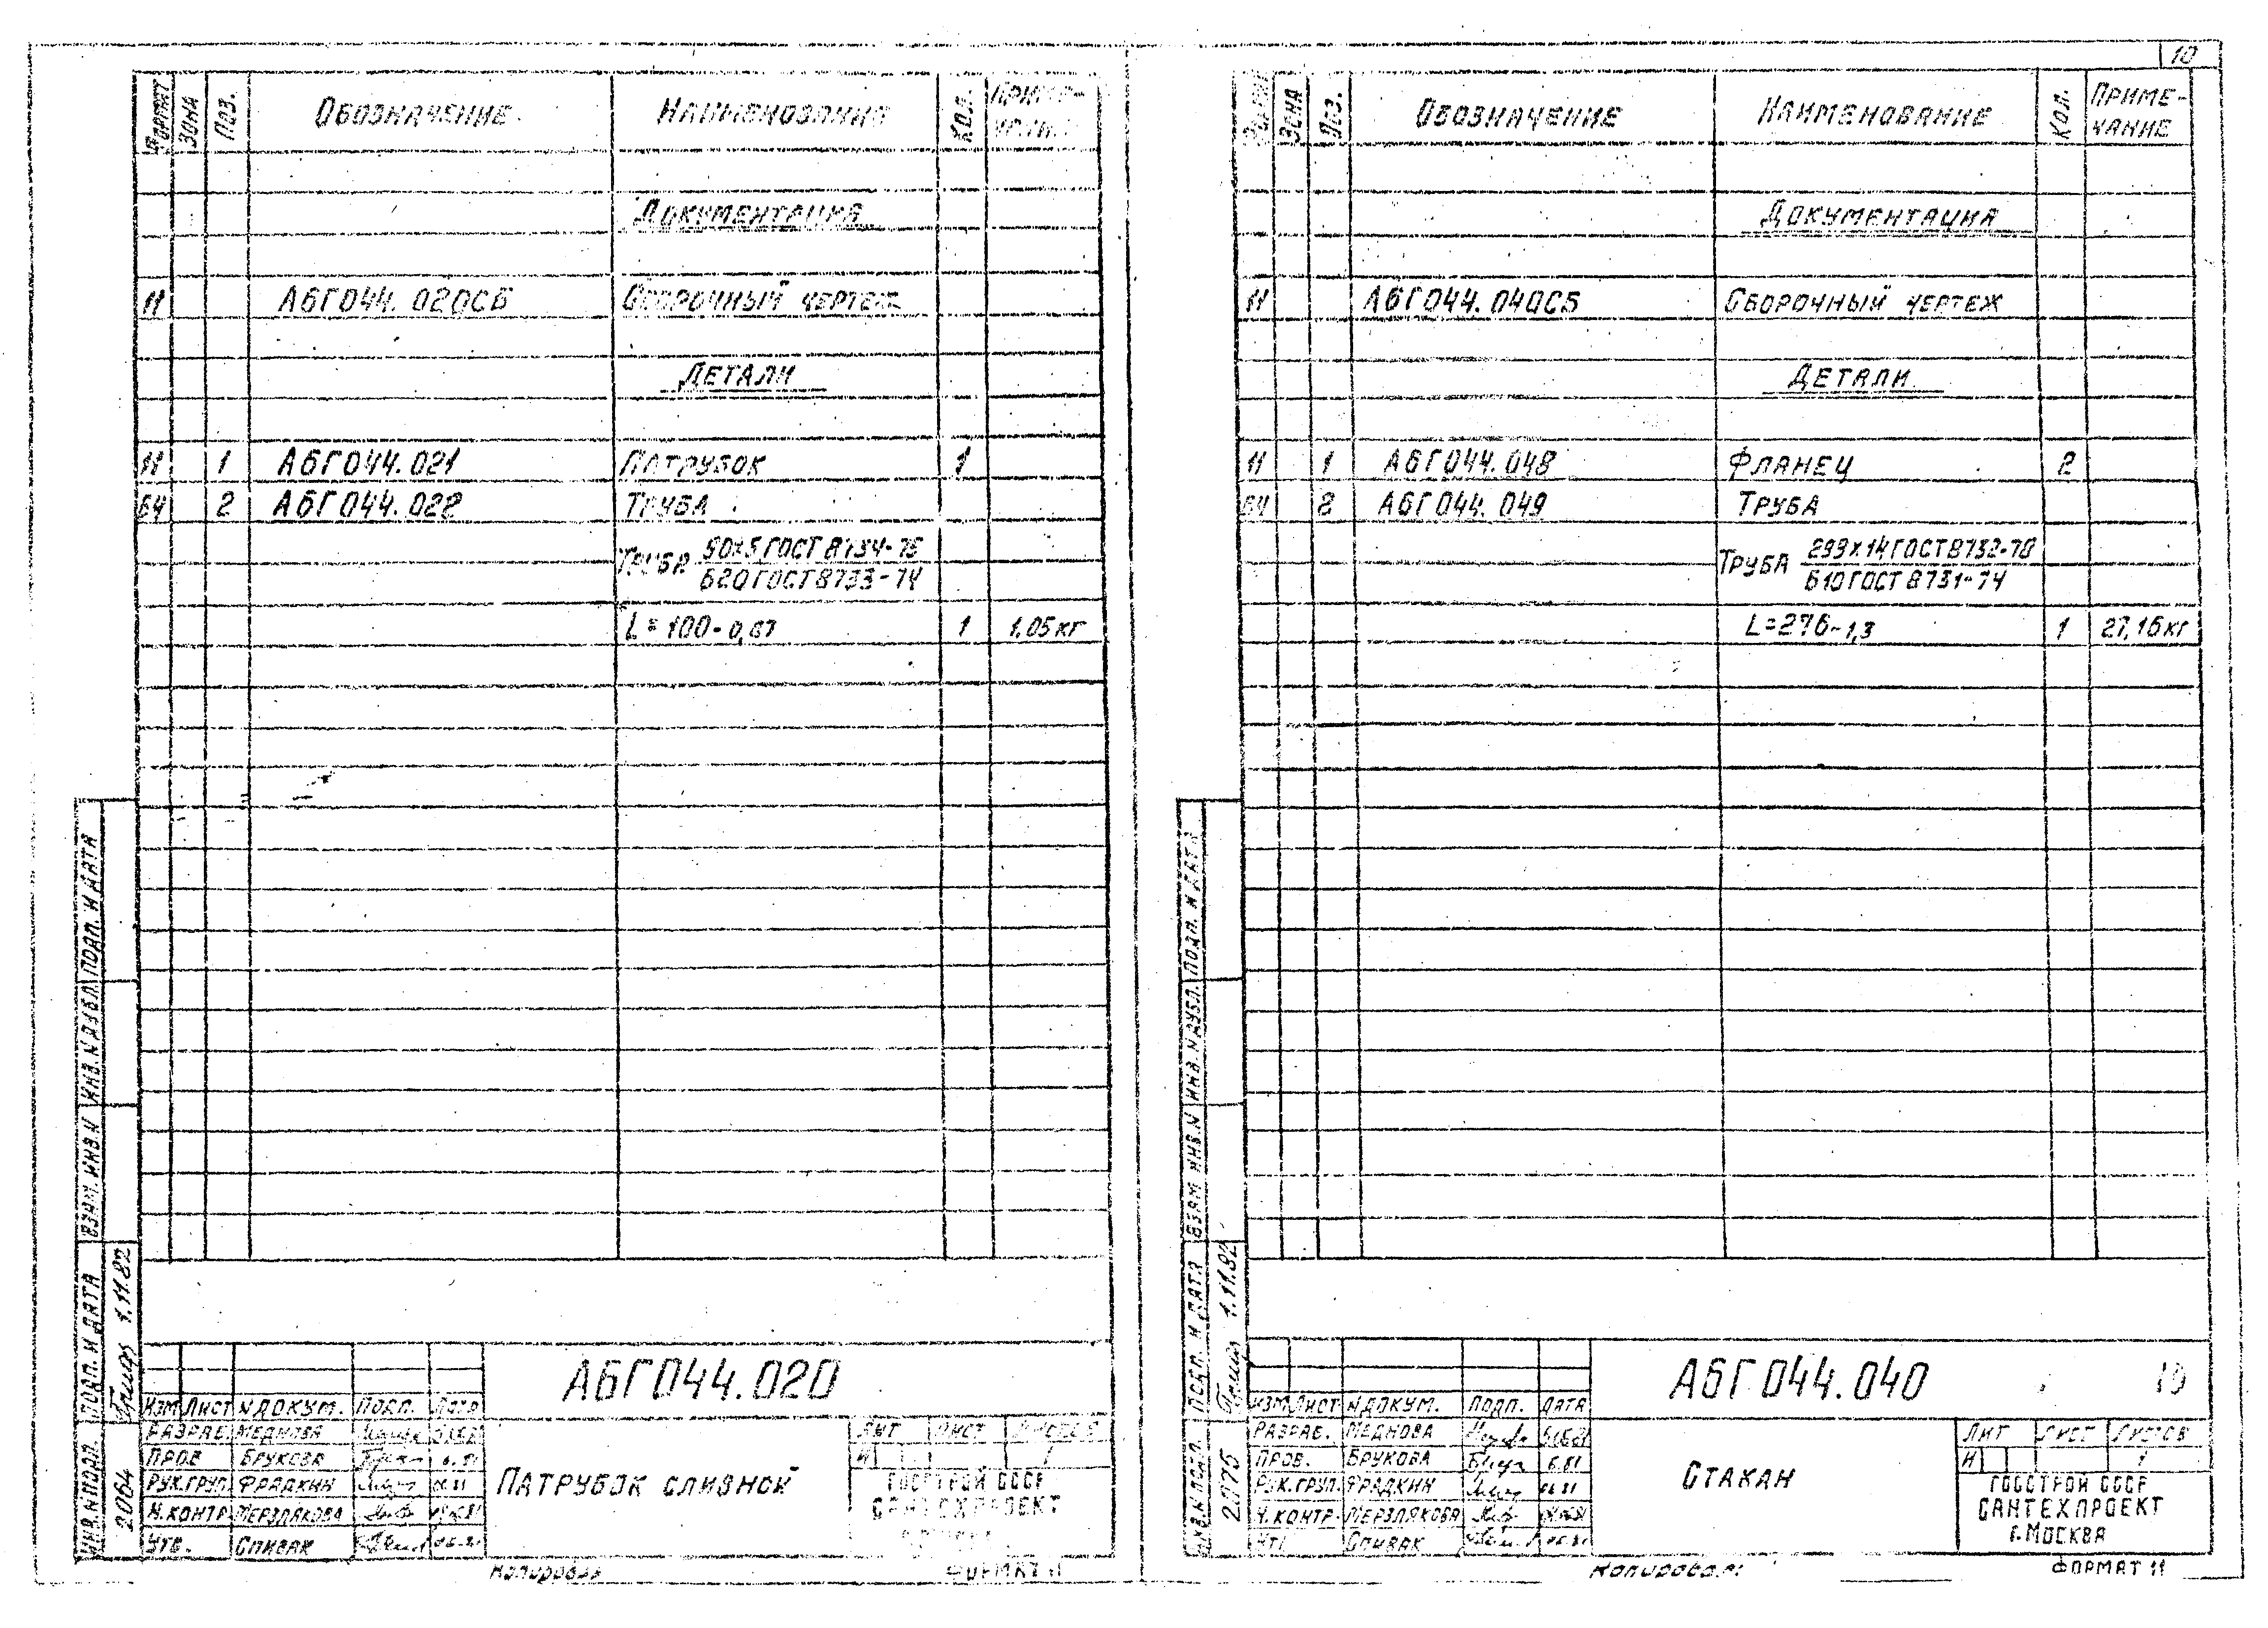 10
Формат Зона Поз. Обозначение Наименование Кол. Приме-
чание
Документация
11 А6Г044.020СБ Сборочный чертеж
Детали
11 1 А6Г044.021 Патрубок 1
БЧ 2 А6Г044.022 Труба
Труба 50х5 ГОСТ 8734-75
Б20 ГОСТ 8733-74
L=100-0,87 1 1,05кг
Подп. и дата
Инв.N дубл.
Взам. инв.N
Подп. и дата 1.11.82
Инв.N подл. 2064
А6Г044.020
Изм Лист N докум. Подп. Дата
Разраб. Меднова
Пров. Брукова 6.81
Рук.груп. Фрадкин 06.81
Н.контр. Мерзлякова
Утв. Спивак 06.81
Патрубок сливной
Лит Лист Листов
И 1
Госстрой СССР
Сантехпроект
г.Москва
Копировал Формат 11
Формат Зона Поз. Обозначение Наименование Кол. Приме-
чание
Документация
11 А6Г044.040СБ Сборочный чертеж
Детали
11 1 А6Г044.048 Фланец 2
БЧ 2 А6Г044.049 Труба
Труба 299х14 ГОСТ 8732-78
Б10 ГОСТ 8731-74
L=276-1,3 1 27,16кг
Подп. и дата
Инв.N дубл.
Взам. инв.N
Подп. и дата 1.11.82
Инв.N подл. 2075
А6Г044.040 10
Изм Лист N докум. Подп. Дата
Разраб. Меднова
Пров. Брукова 6.81
Рук.груп. Фрадкин 06.81
Н.контр. Мерзлякова
Утв. Спивак 06.81
Стакан
Лит Лист Листов
И 1
Госстрой СССР
Сантехпроект
г.Москва
Копировал Формат 11